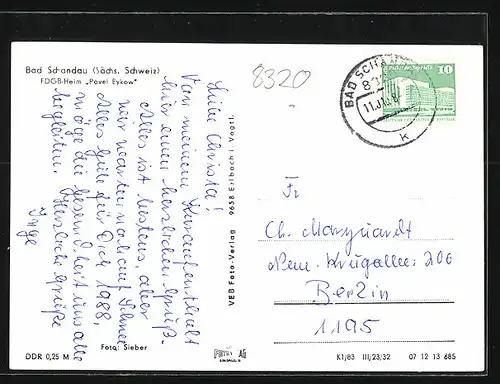 Bad Schandau (Sächs. Schweiz)
FDGB-Heim „Pavel Bykow"
8320
BAD SCHANDAU
11.01.8
k
10
Liebe Christa!
Von meinem Kuraufenthalt
hier einen herzlichen Gruß.
Alles ist bestens, aber
wir warten noch auf Schnee
Alles Gute für Dich 1988,
möge die Gesundheit uns alle
begleiten. Herzliche Grüße
Inge
VEB Foto-Verlag 9658 Erlbach i. Vogtl.
Fr
Ch. Marquardt
Neue Krugallee 206
Berlin
1195
Foto: Sieber
DDR 0,25 M
K1/83 III/23/32 07 12 13 685